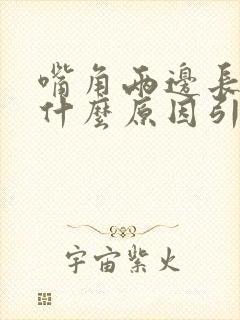 嘴角兩邊長
什麼原因引
宇宙紫火